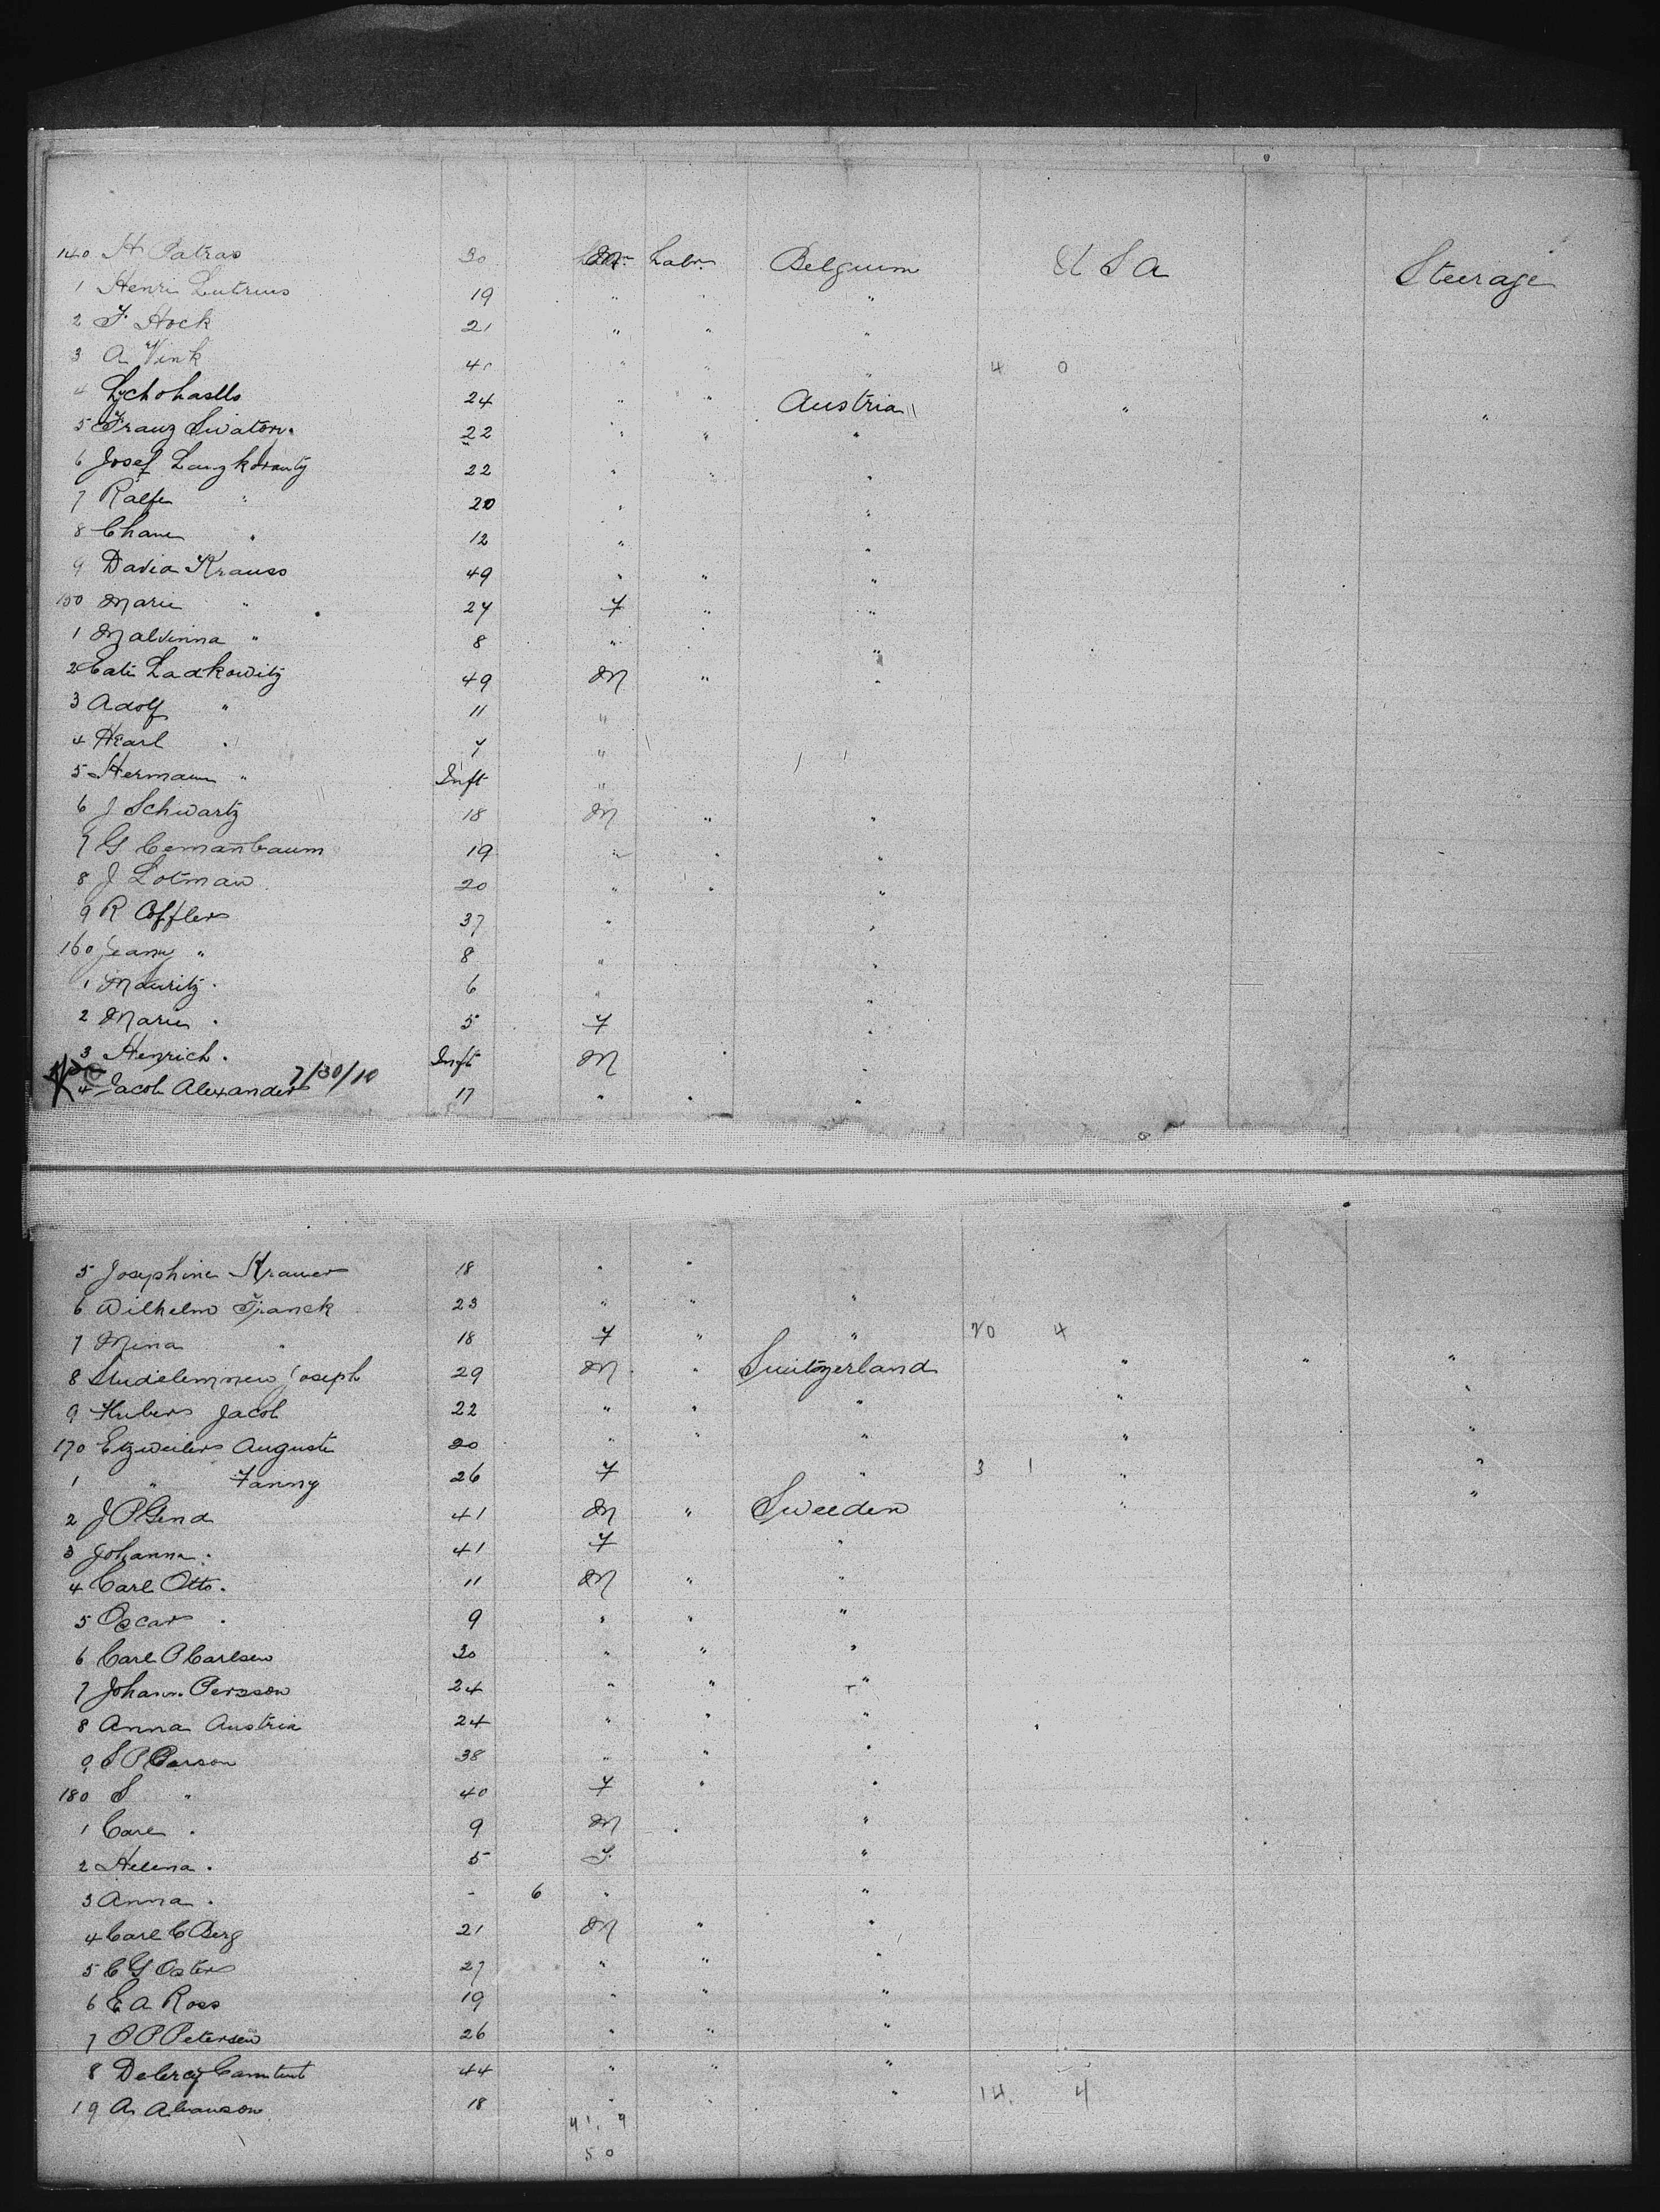 140 H Patras 30 M Labr. Belgium U S A Steerage
1 Henri Lutrius 19 " " "
2 F. Hock 21 " " "
3 A Vink 40 " " " 4 0
4 24 " " Austria " "
5 Franz 22 " " "
6 Josef 22 " " "
7 Ralfe " 20 " "
8 Chane " 12 " "
9 David Krauss 49 " " "
150 Marie " 27 F " "
1 Malvinna " 8 " " "
2 Cati Ladkowitz 49 M " "
3 Adolf " 11 "
4 Karl " 7 "
5 Hermann " Inft "
6 J Schwartz 18 M " "
7 G Cemanbaum 19 " " "
8 J Lotman 20 " " "
9 R Cofflers 37 " "
160 Jeany " 8 " "
1 Mauritz " 6 " "
2 Marie " 5 F "
3 Henrich " Inft M " "
7/30/10
4 Jacob Alexander 17 " " "
5 Josephine Kramer 18 " "
6 Wilhelm Franck 23 " " "
7 Mina " 18 F " " 20 4
8 Joseph 29 M " Switzerland " " "
9 Hubers Jacob 22 " " " " "
170 Etzweilers Auguste 20 " " " " "
1 " Fanny 26 F " 3 1 " "
2 J P Gend 41 M " Sweeden " "
3 Johanna " 41 F "
4 Carl Otto " 11 M " "
5 Oscar " 9 " " "
6 Carl O Carlsen 30 " " "
7 Johann Persson 24 " " "
8 Anna Austria 24 " " "
9 S P Parson 38 " " "
180 S " 40 F " "
1 Carl " 9 M " "
2 Helena " 5 F "
3 Anna " - 6 " "
4 Carl C Berg 21 M " "
5 C G Oster 27 " " "
6 E A Ross 19 " " "
7 P P Petersen 26 " " "
8 44 " " "
19 A 18 " " " 14 4
41. 9
50